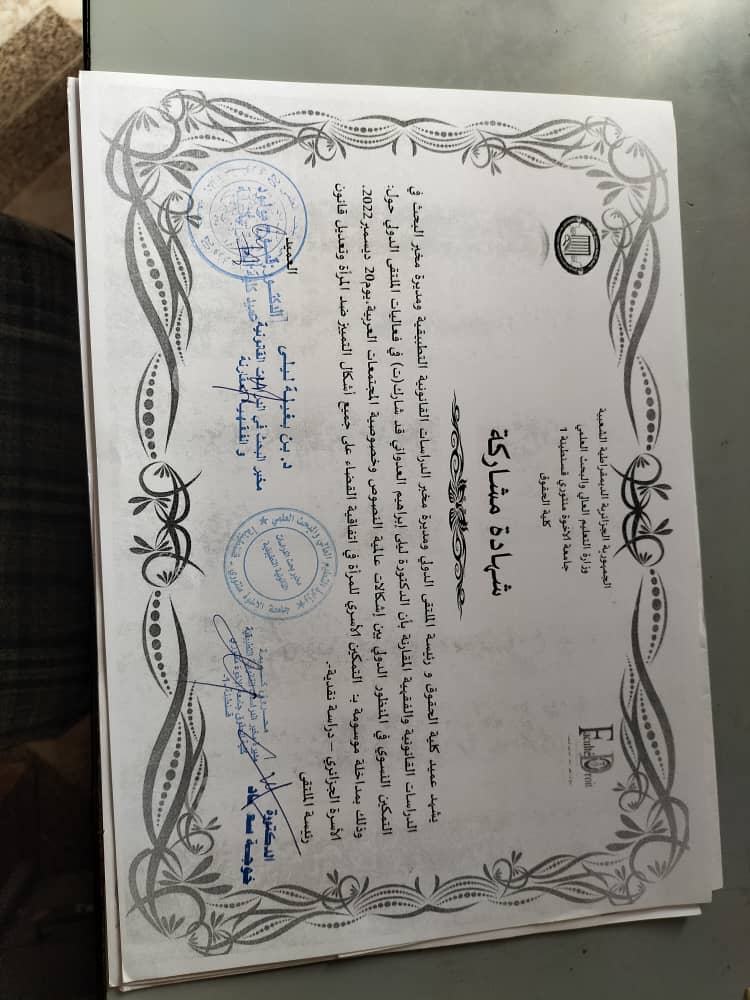 الجمهورية الجزائرية الديمقراطية الشعبية
وزارة التعليم العالي والبحث العلمي
جامعة الاخوة منتوري قسنطينة 1
كلية الحقوق
Faculté
Droit
شهادة مشاركة
يشهد عميد كلية الحقوق و رئيسة الملتقى الدولي ومديرة مخبر الدراسات القانونية التطبيقية ومديرة مخبر البحث في
الدراسات القانونية والفقهية المقارنة بأن الدكتورة ليلى إبراهيم العدواني قد شارك(ت) في فعاليات الملتقى الدولي حول:
التمكين النسوي في المنظور الدولي بين إشكالات عالمية النصوص وخصوصية المجتمعات العربية،يوم20 ديسمبر2022.
وذلك بمداخلة موسومة بـ: التمكين الأسري للمرأة في اتفاقية القضاء على جميع أشكال التمييز ضد المرأة وتعديل قانون
الأسرة الجزائري – دراسة نقدية-.
العميد
رئيسة الملتقى
د. بن بغيلة ليلى
مخبر البحث في
القانونية
و الفقهية المقارنة
الدكتورة
خوجة سعاد